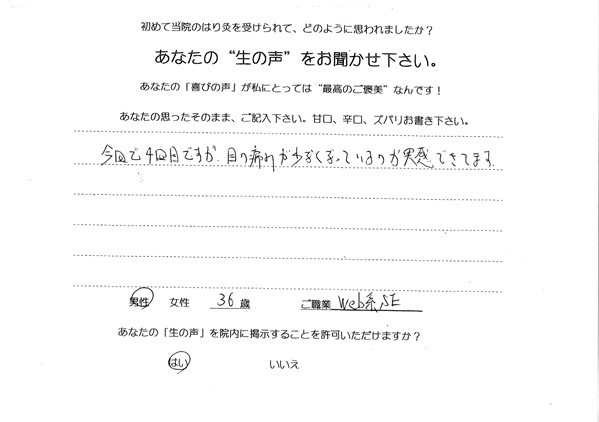 初めて当院のはり灸を受けられて、どのように思われましたか？
あなたの“生の声”をお聞かせ下さい。
あなたの「喜びの声」が私にとっては“最高のご褒美”なんです！
あなたの思ったそのまま、ご記入下さい。甘口、辛口、ズバリお書き下さい。
今回で4回目ですが、目の疲れが少なくなっているのが実感できてます。
男性 女性 36 歳 ご職業 Web系SE
あなたの「生の声」を院内に掲示することを許可いただけますか？
はい いいえ